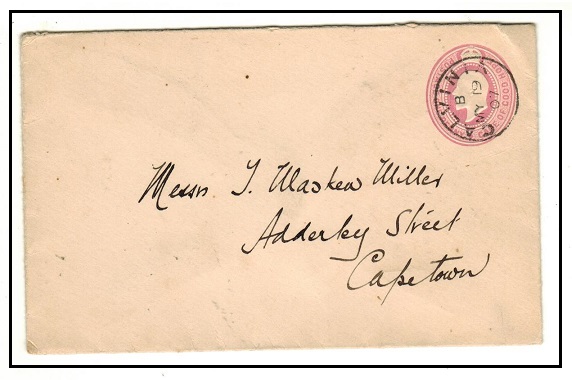 CALVINIA
B
19 MY
07
Messrs T. Maskew Miller
Adderley Street
Capetown